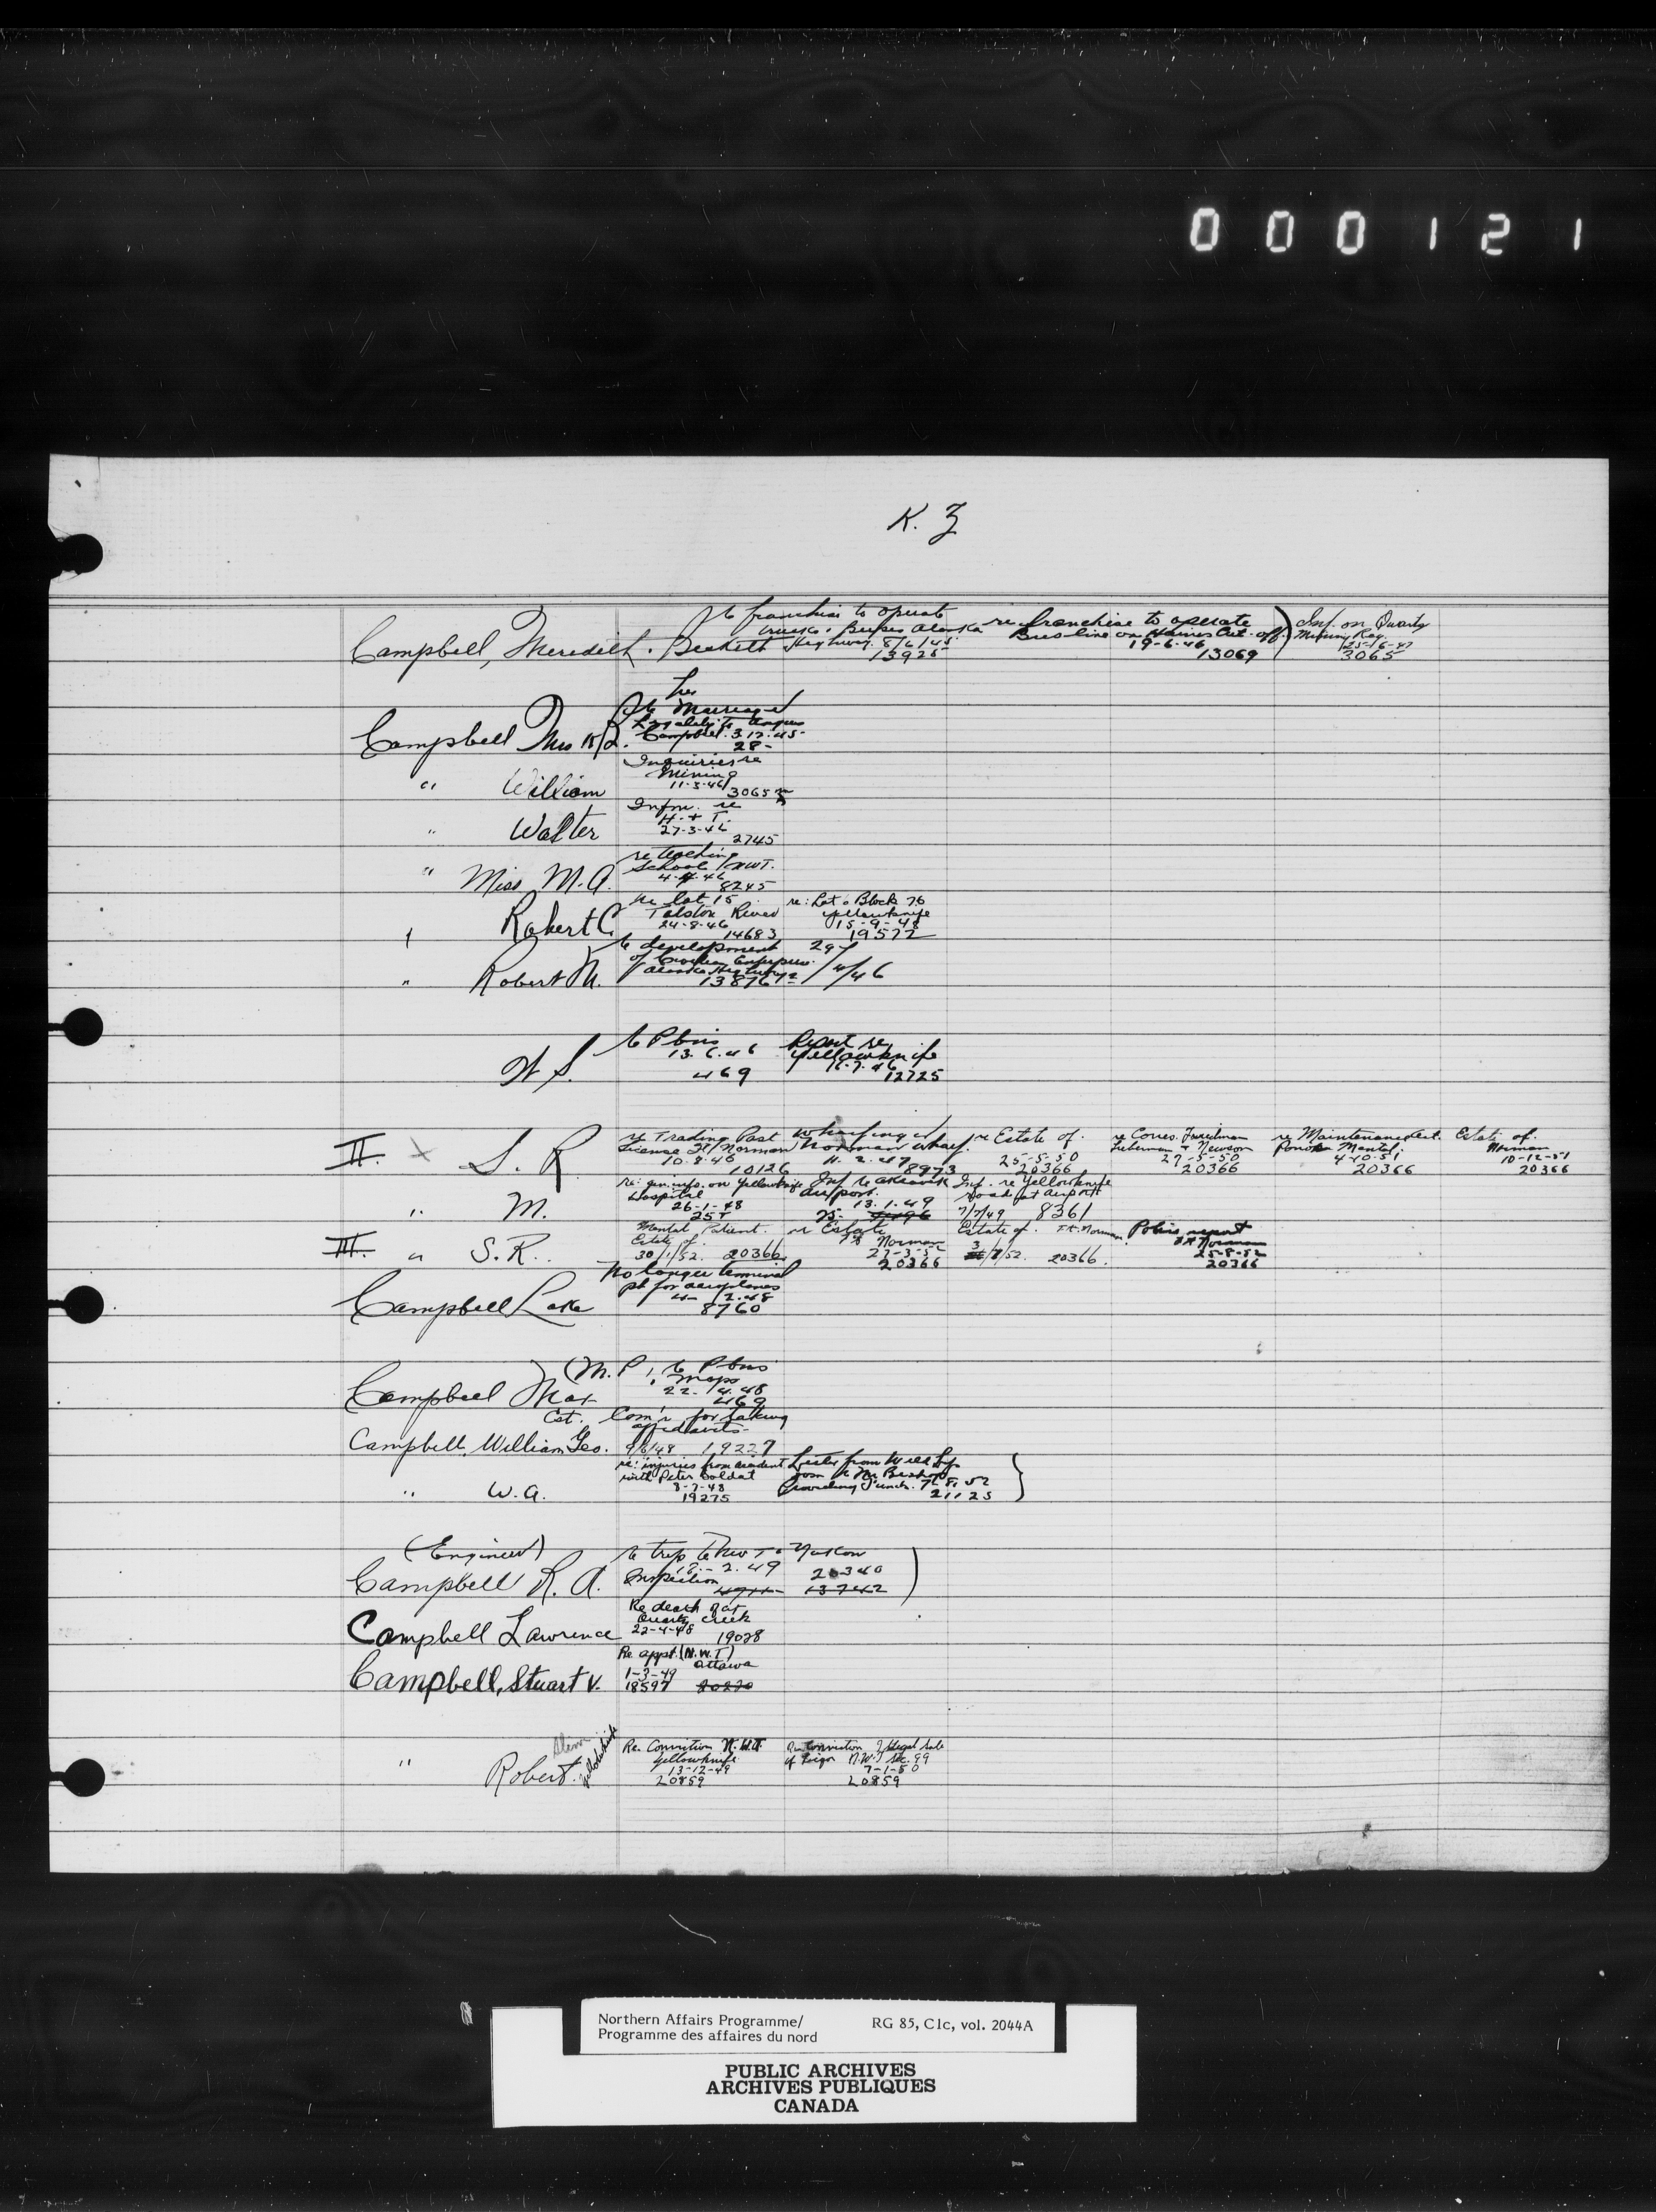 000121
K. Z
Campbell, Meredith. Beckett
re franchise to operate
trucks & Buses Alaska
Highway. 8/6/45
13925
re franchise to operate
Bus line on Haines Cut-off.
19-6-46
13069
Inf. on Quartz
Mining Reg.
25-6-47
3065
Campbell Mrs
her
re Marriage
Legality to Angus
Campbell. 3.12.45-
28-
" William
Inquiries re
Mining
11-3-46
3065
" Walter
Infm. re
H. & T.
27-3-46
2745
" Miss M.A.
re teaching
School NWT.
4-4-46
8245
Robert C.
re lot 15
Talston River
24-8-46
14683
re: Lot Block 76
Yellowknife
15-9-48
19577
" Robert M.
re development
of
Alaska Highway
13876
29/4/46
W S.
re Pbns
13.6.46
469
Report re
Yellowknife
12725
II. X S. R
re Trading Post
License Ft/Norman
10-8-46
10126
Wharfing
Norman wharf.
11.2.47
8973
re Estate of.
25-5-50
20366
re Corres. Friedman
Lieberman & Newson
27-5-50
20366
re Maintenance Act.
Ponoka Mental.
4-10-51
20366
Estate of.
Norman
10-12-51
20366
" M.
re: gen. info. on Yellowknife
Hospital
26-1-48
257
Inf re Aklavik
airport.
13.1.49
Inf. re Yellowknife
road at airport
7/7/49 8361
III. " S.R.
Mental Patient.
Estate of
30/1/52. 20366
re Estate
Ft Norman
27-3-52
20366
Estate of Ft. Norman
3/7/52. 20366.
Police report
Ft Norman
25-8-52
20366
Campbell Lake
No longer terminal
pt for aeroplanes
8760
Campbell Max (M.P.)
re Pbns
Maps
22.4.48
469
Cst.
Campbell, William Geo.
Com'r for taking
affidavits-
9/6/48 19227
" W.A.
re: injuries from accident
with Peter Soldat
8-7-48
19275
Letter from Will
from to Mr Bishop
Providing Funds. 7.8.52
21125
(Engineer)
Campbell R. A.
re trip to NWT & Yukon
Inspection 2.49
20340
13742
Campbell Lawrence
Re death of at
Quartz Creek
22-4-48
19028
Campbell, Stuart V.
Re appt. (N.W.T)
Ottawa
1-3-49
18597 20220
" Robert.
Yellowknife
Re. Conviction N.W.T
Yellowknife
13-12-49
20859
Re Conviction Illegal Sale
of Liqor N.W.T Sec. 99
7-1-50
20859
Northern Affairs Programme/
Programme des affaires du nord
RG 85, C1c, vol. 2044A
PUBLIC ARCHIVES
ARCHIVES PUBLIQUES
CANADA